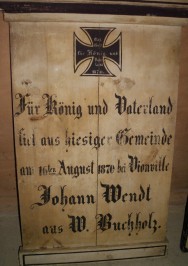 für König und
Für König und Vaterland
fiel aus hiesiger Gemeinde
am 16ten August 1870 bei Vionville
Johann Wendt
aus W. Buchholz.